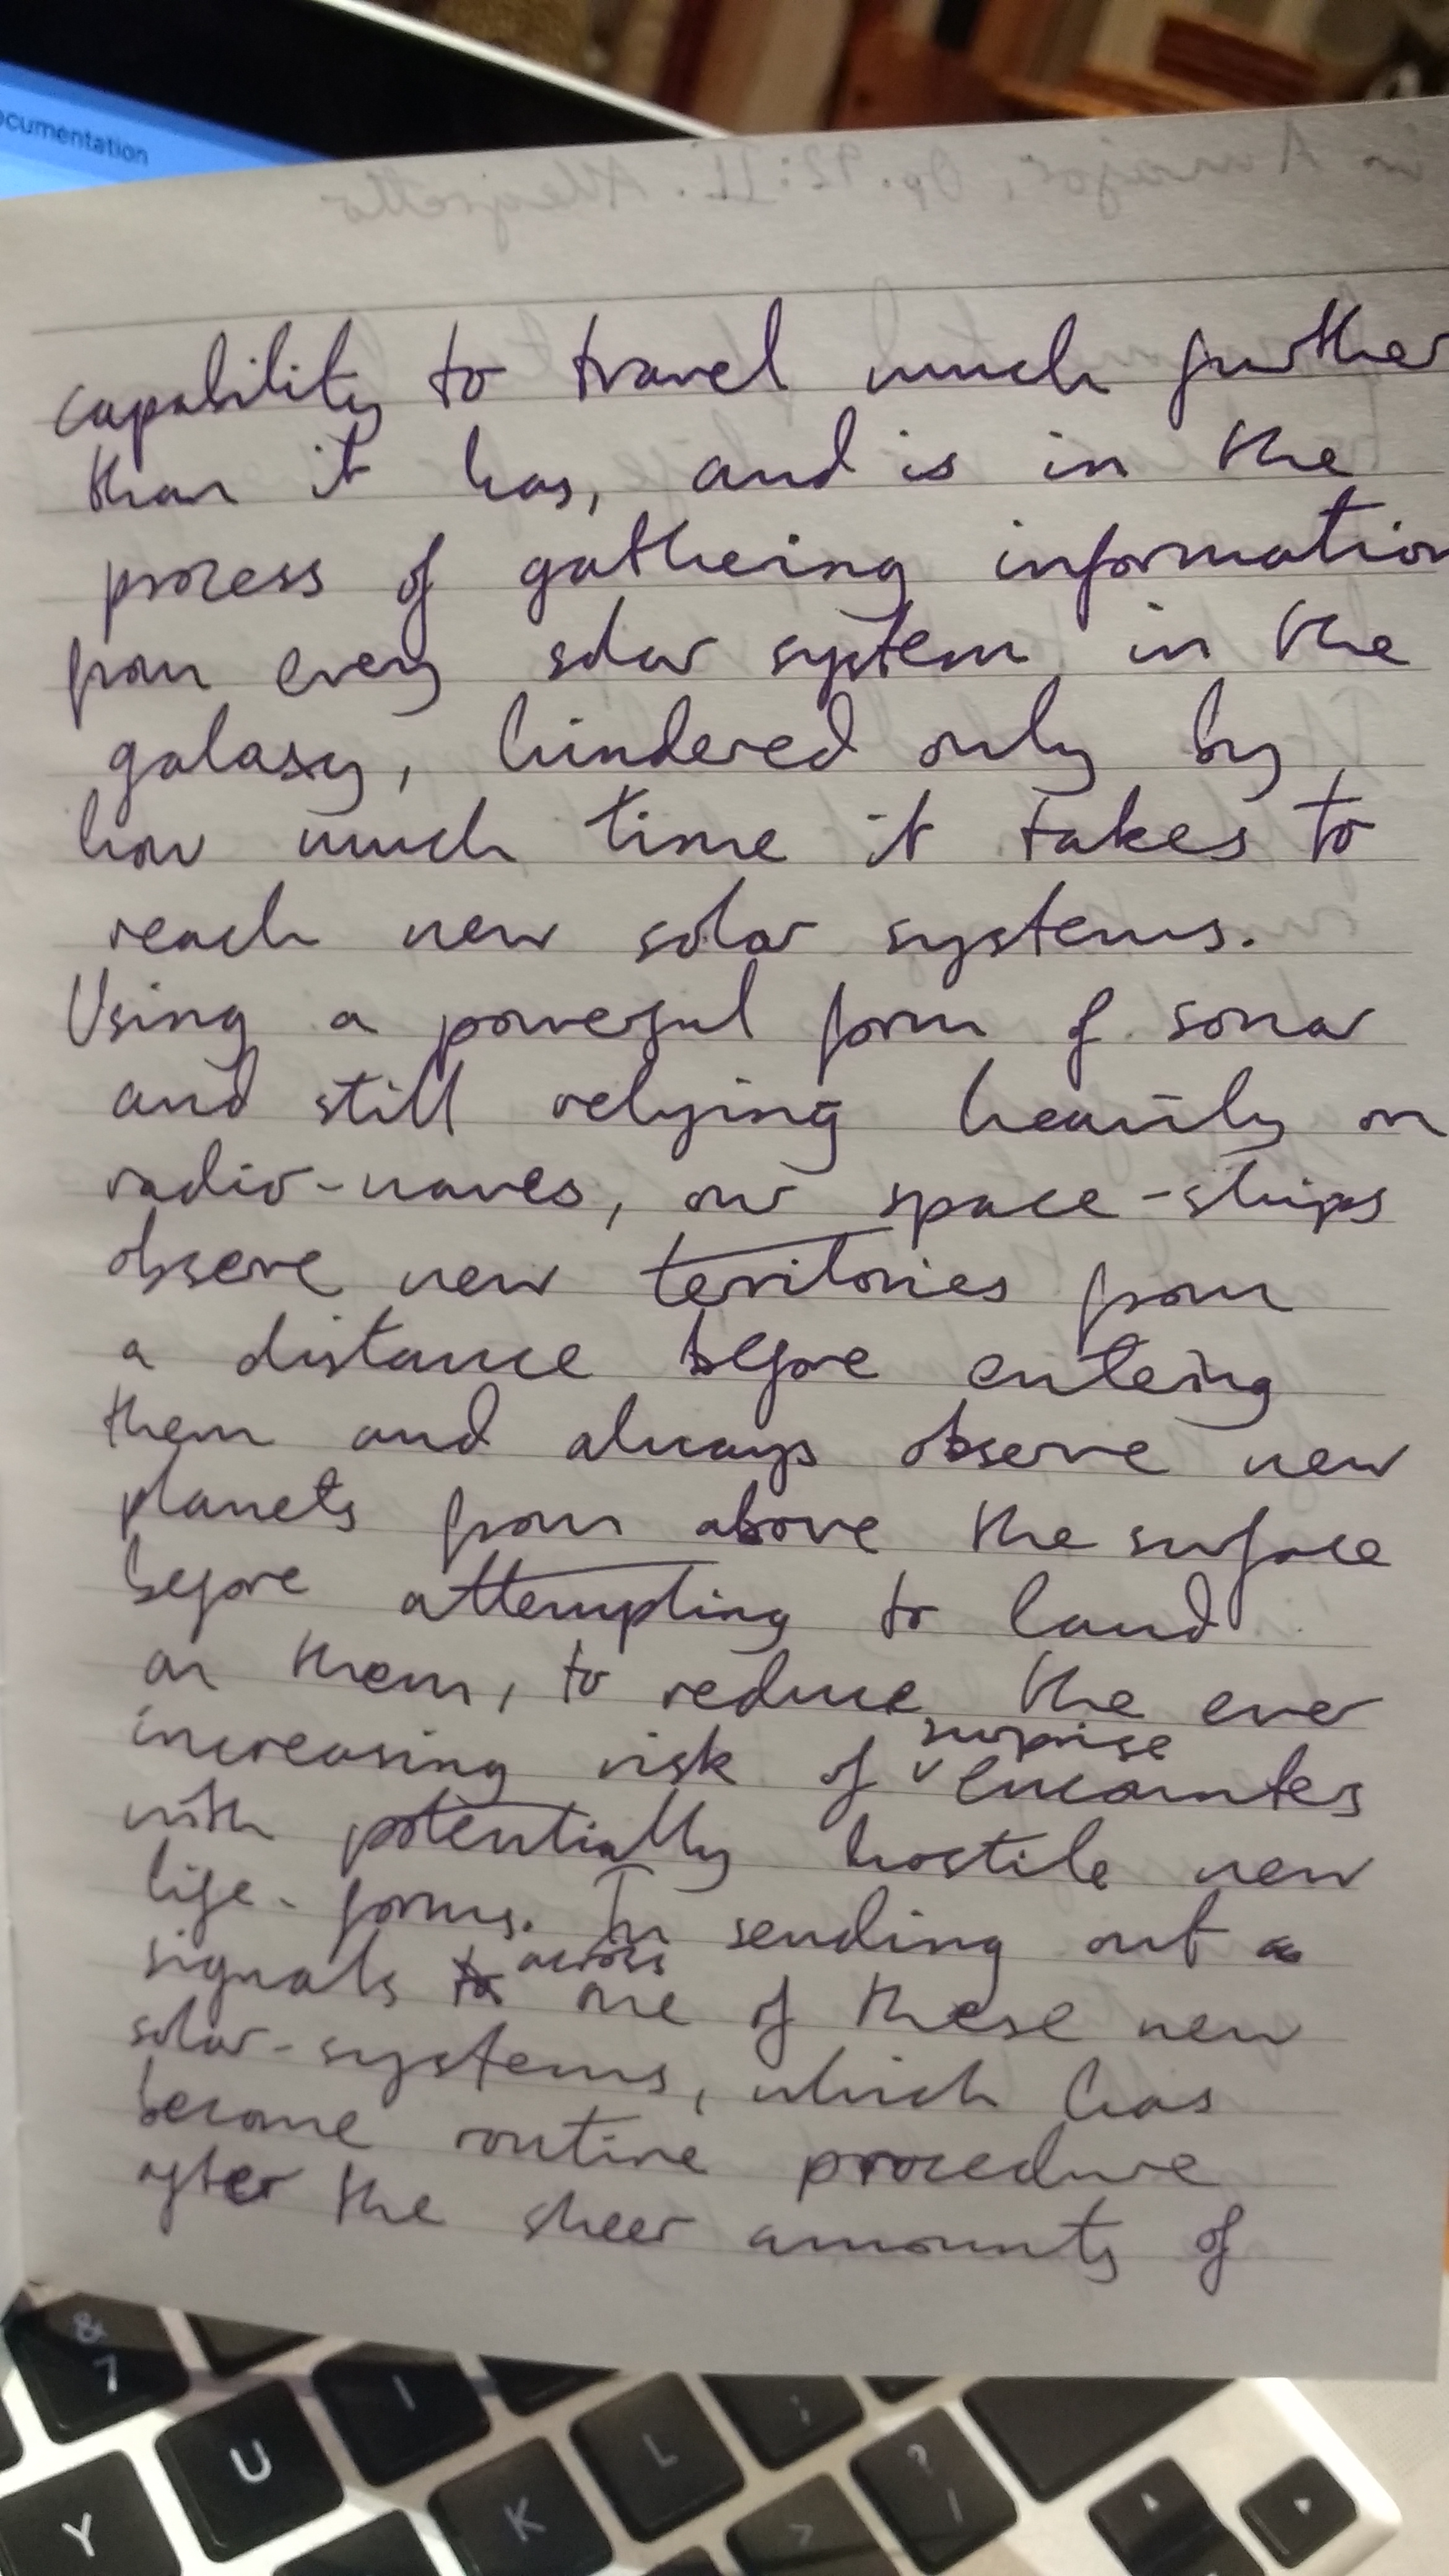 ocumentation
in A major, Op. 92: II. Allegretto
capability to travel much further
than it has, and is in the
process of gathering information
from every solar system in the
galaxy, hindered only by
how much time it takes to
reach new solar systems.
Using a powerful form of sonar
and still relying heavily on
radio-waves, our space-ships
observe new territories from
a distance before entering
them and always observe new
planets from above the surface
before attempting to land
on them, to reduce the ever
increasing risk of surprise encounters
with potentially hostile new
life-forms. In sending out
signals across one of these new
solar-systems, which has
become routine procedure
after the sheer amounts of
&
7
U
I
L
;
?
/
Y
K
>